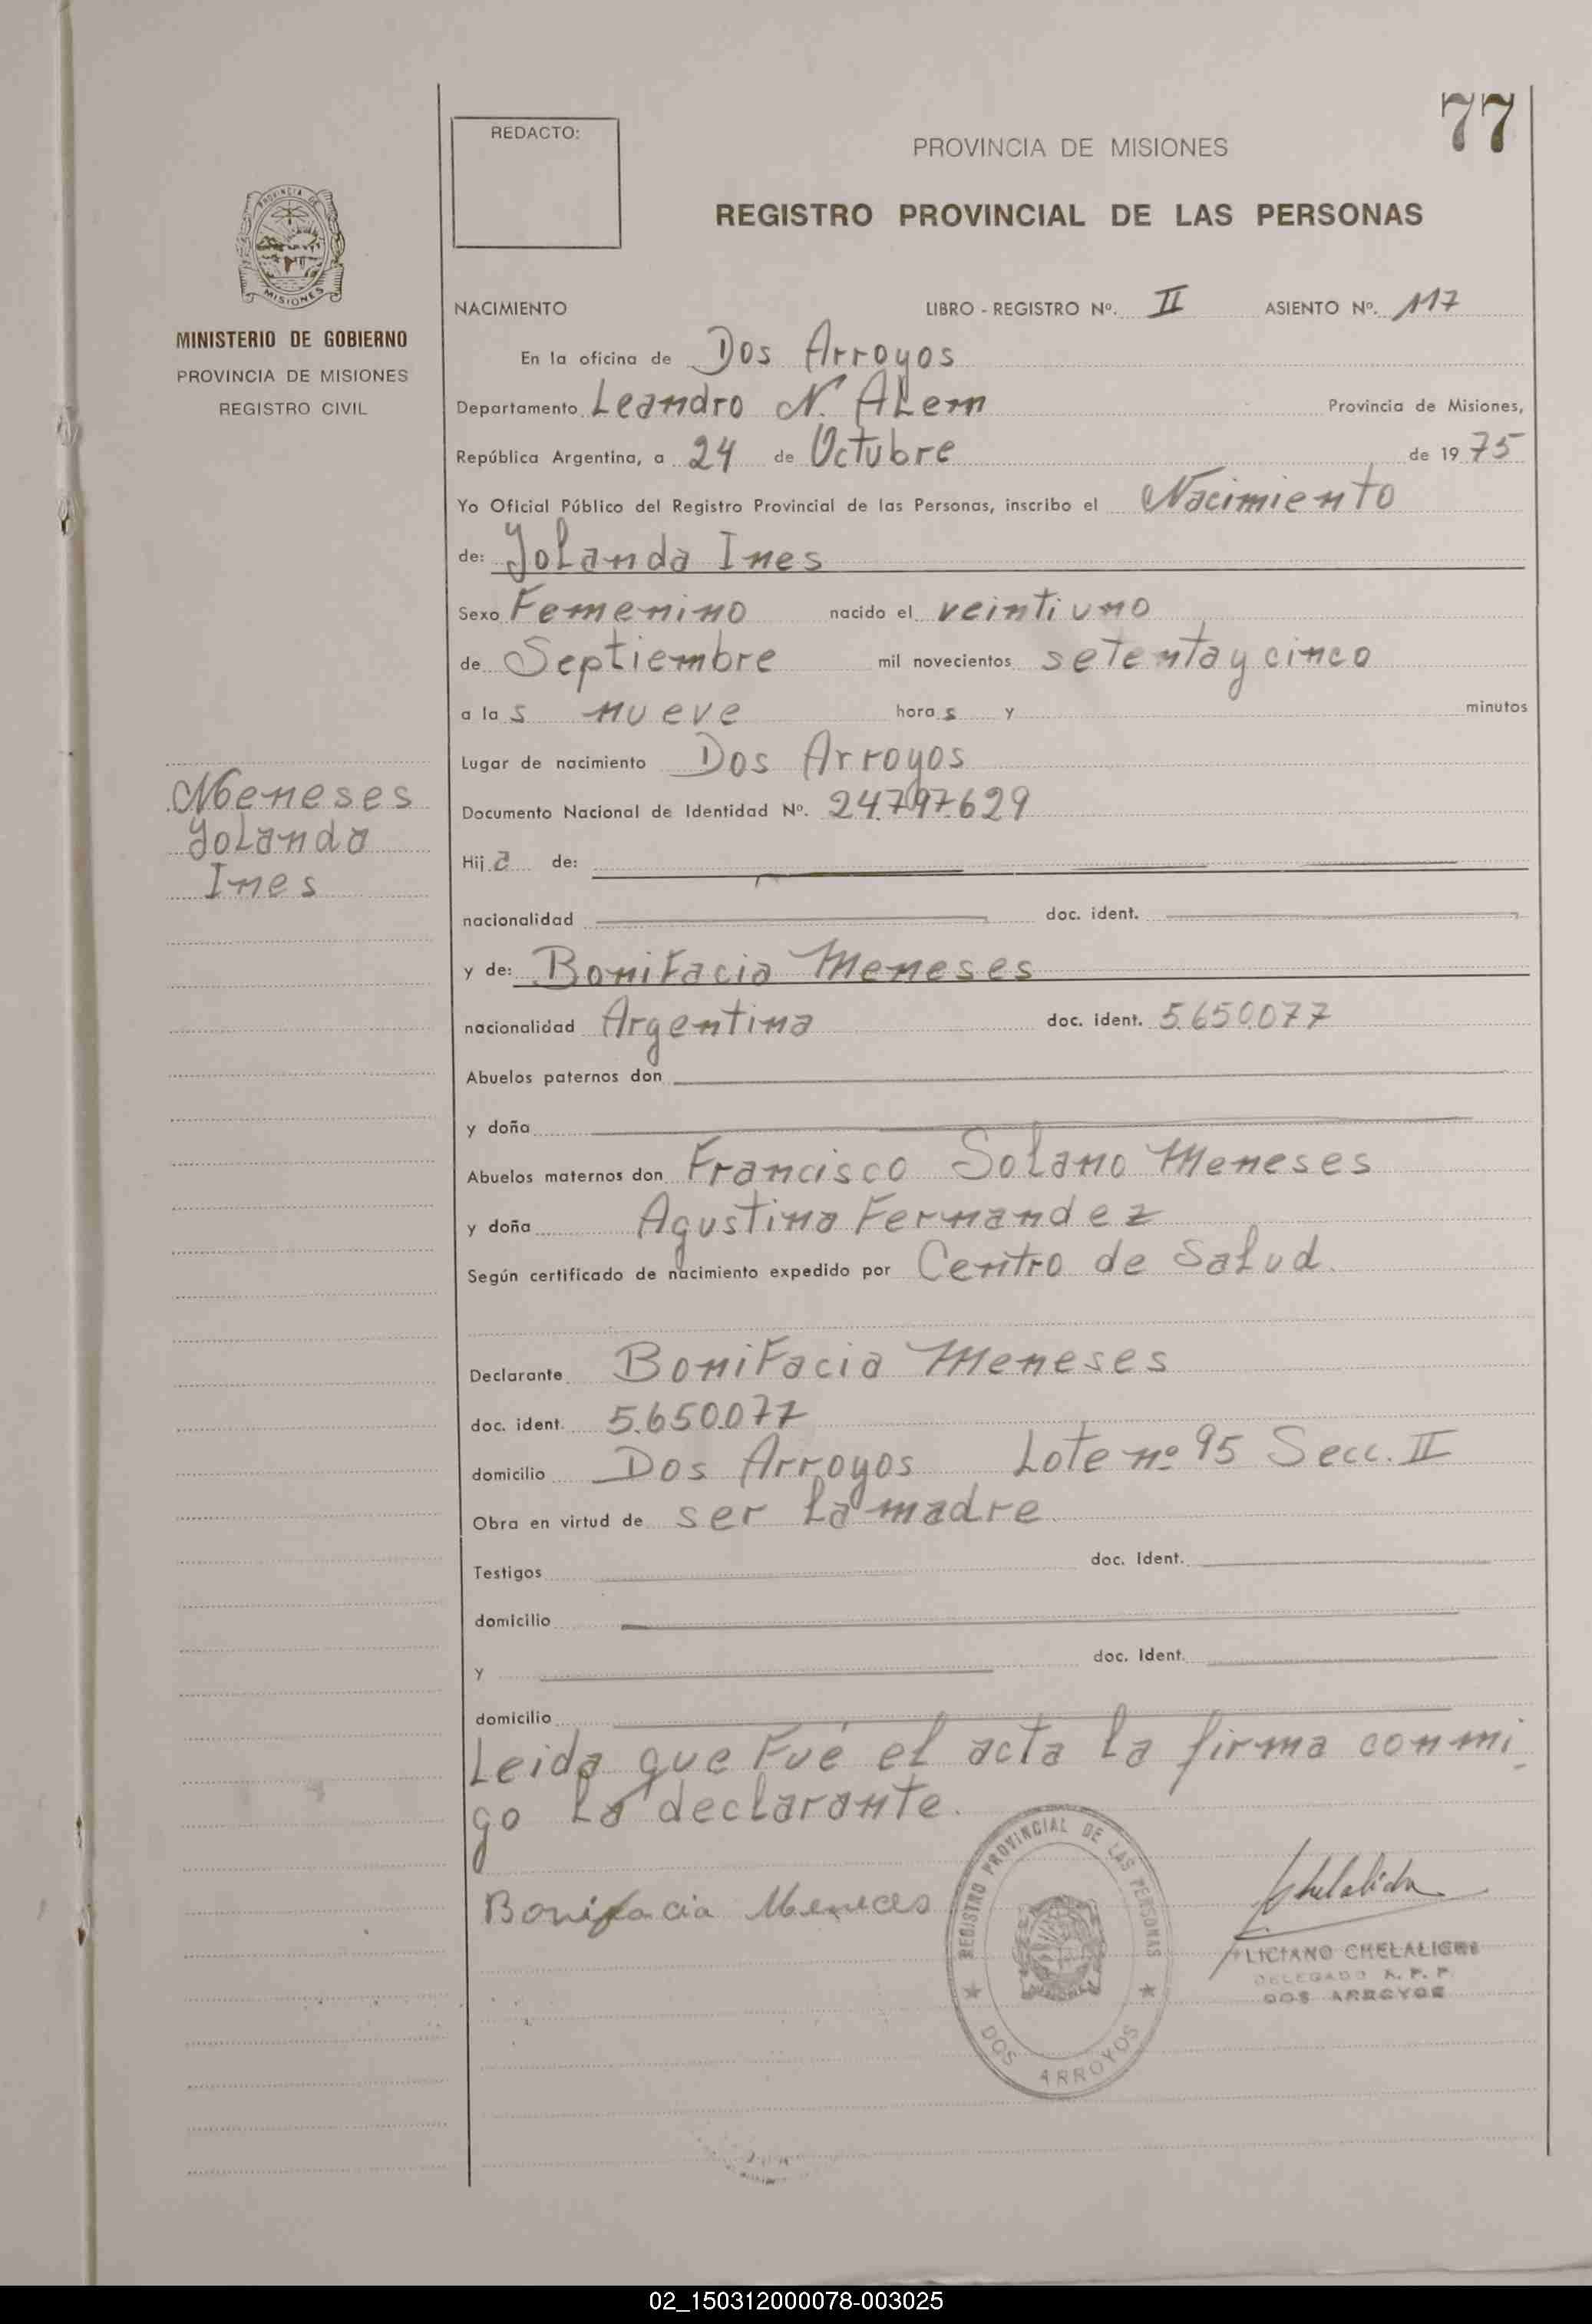 77
REDACTO:
PROVINCIA DE MISIONES
REGISTRO PROVINCIAL DE LAS PERSONAS
PROVINCIA DE
MISIONES
MINISTERIO DE GOBIERNO
PROVINCIA DE MISIONES
REGISTRO CIVIL
NACIMIENTO LIBRO - REGISTRO Nº. II ASIENTO Nº. 117
En la oficina de Dos Arroyos
Departamento Leandro N. ALem Provincia de Misiones,
República Argentina, a 24 de Octubre de 1975
Yo Oficial Público del Registro Provincial de las Personas, inscribo el Nacimiento
de: Yolanda Ines
Sexo Femenino nacido el veinti uno
de Septiembre mil novecientos setenta y cinco
a las nueve horas y minutos
Lugar de nacimiento Dos Arroyos
Meneses
Yolanda
Ines
Documento Nacional de Identidad Nº. 24.797.629
Hija de:
nacionalidad doc. ident.
y de: Bonifacia Meneses
nacionalidad Argentina doc. ident. 5.650.077
Abuelos paternos don
y doña
Abuelos maternos don Francisco Solano Meneses
y doña Agustina Fernandez
Según certificado de nacimiento expedido por Centro de Salud.
Declarante Bonifacia Meneses
doc. ident. 5.650.077
domicilio Dos Arroyos Lote nº 95 Secc. II
Obra en virtud de ser la madre
Testigos doc. Ident.
domicilio
y doc. Ident.
domicilio
Leida que Fué el acta la firma conmi-
go la declarante.
Bonifacia Meneces
REGISTRO PROVINCIAL DE LAS PERSONAS
DOS ARROYOS
DELEGADO R. P. P.
DOS ARROYOS
02_150312000078-003025